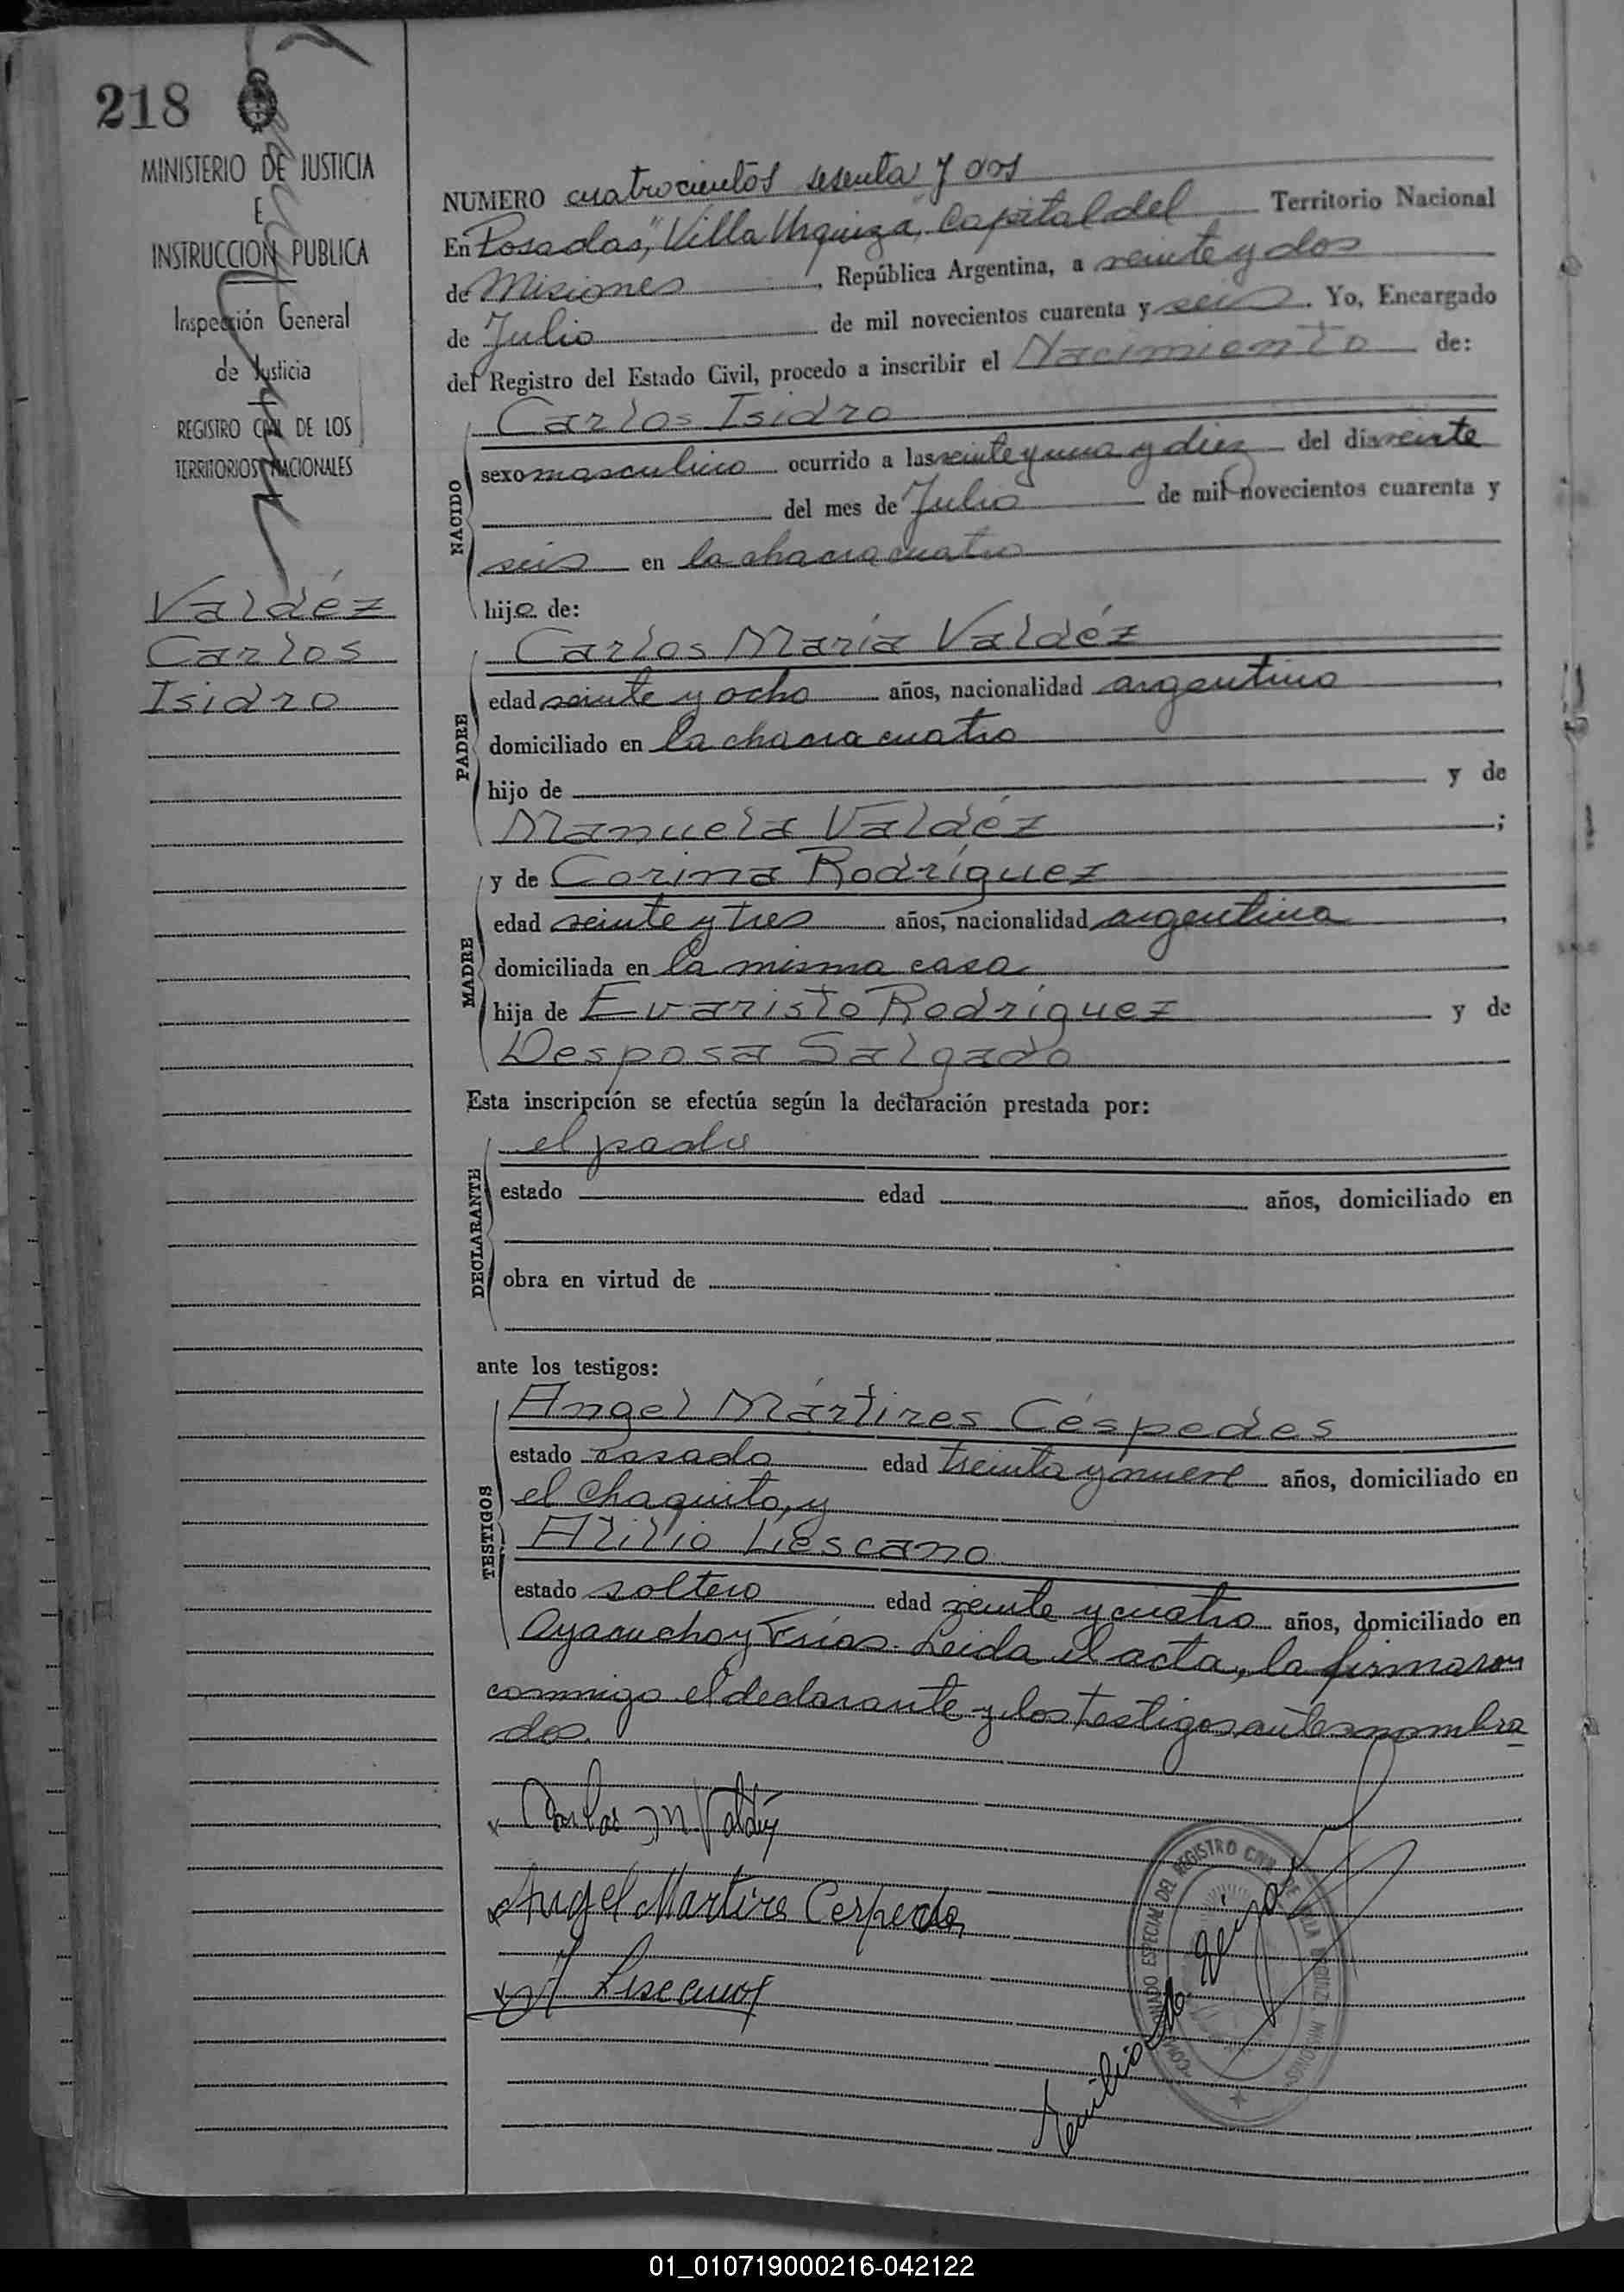 218
MINISTERIO DE JUSTICIA
E
INSTRUCCION PUBLICA
Inspección General
de Justicia
REGISTRO CIVIL DE LOS
TERRITORIOS NACIONALES
Valdéz
Carlos
Isidro
NUMERO cuatrocientos sesenta y dos
En Posadas, "Villa Urquiza", Capital del Territorio Nacional
de Misiones, República Argentina, a veinte y dos
de Julio de mil novecientos cuarenta y seis. Yo, Encargado
del Registro del Estado Civil, procedo a inscribir el Nacimiento de:
NACIDO
Carlos Isidro
sexo masculino ocurrido a las veinte y una y diez del día veinte
del mes de Julio de mil novecientos cuarenta y
seis en la chacra cuatro
hijo de:
PADRE
Carlos María Valdéz
edad veinte y ocho años, nacionalidad argentino,
domiciliado en la chacra cuatro
hijo de y de
Manuela Valdéz;
MADRE
y de Corina Rodríguez
edad veinte y tres años, nacionalidad argentina,
domiciliada en la misma casa
hija de Evaristo Rodríguez y de
Desposa Salgado
Esta inscripción se efectúa según la declaración prestada por:
DECLARANTE
el padre
estado edad años, domiciliado en
obra en virtud de
ante los testigos:
TESTIGOS
Angel Mártires Céspedes
estado casado edad treinta y nueve años, domiciliado en
el Chaquito, y
Atilio Liescano
estado soltero edad veinte y cuatro años, domiciliado en
Ayacucho y Frías. Leida el acta, la firmaron
conmigo el declarante y los testigos antes nombra
dos.
Carlos M Valdéz
Angel Martires Cespedes
A Liescano
COMISIONADO ESPECIAL DEL REGISTRO CIVIL DE VILLA URQUIZA MISIONES
Emilio
01_010719000216-042122